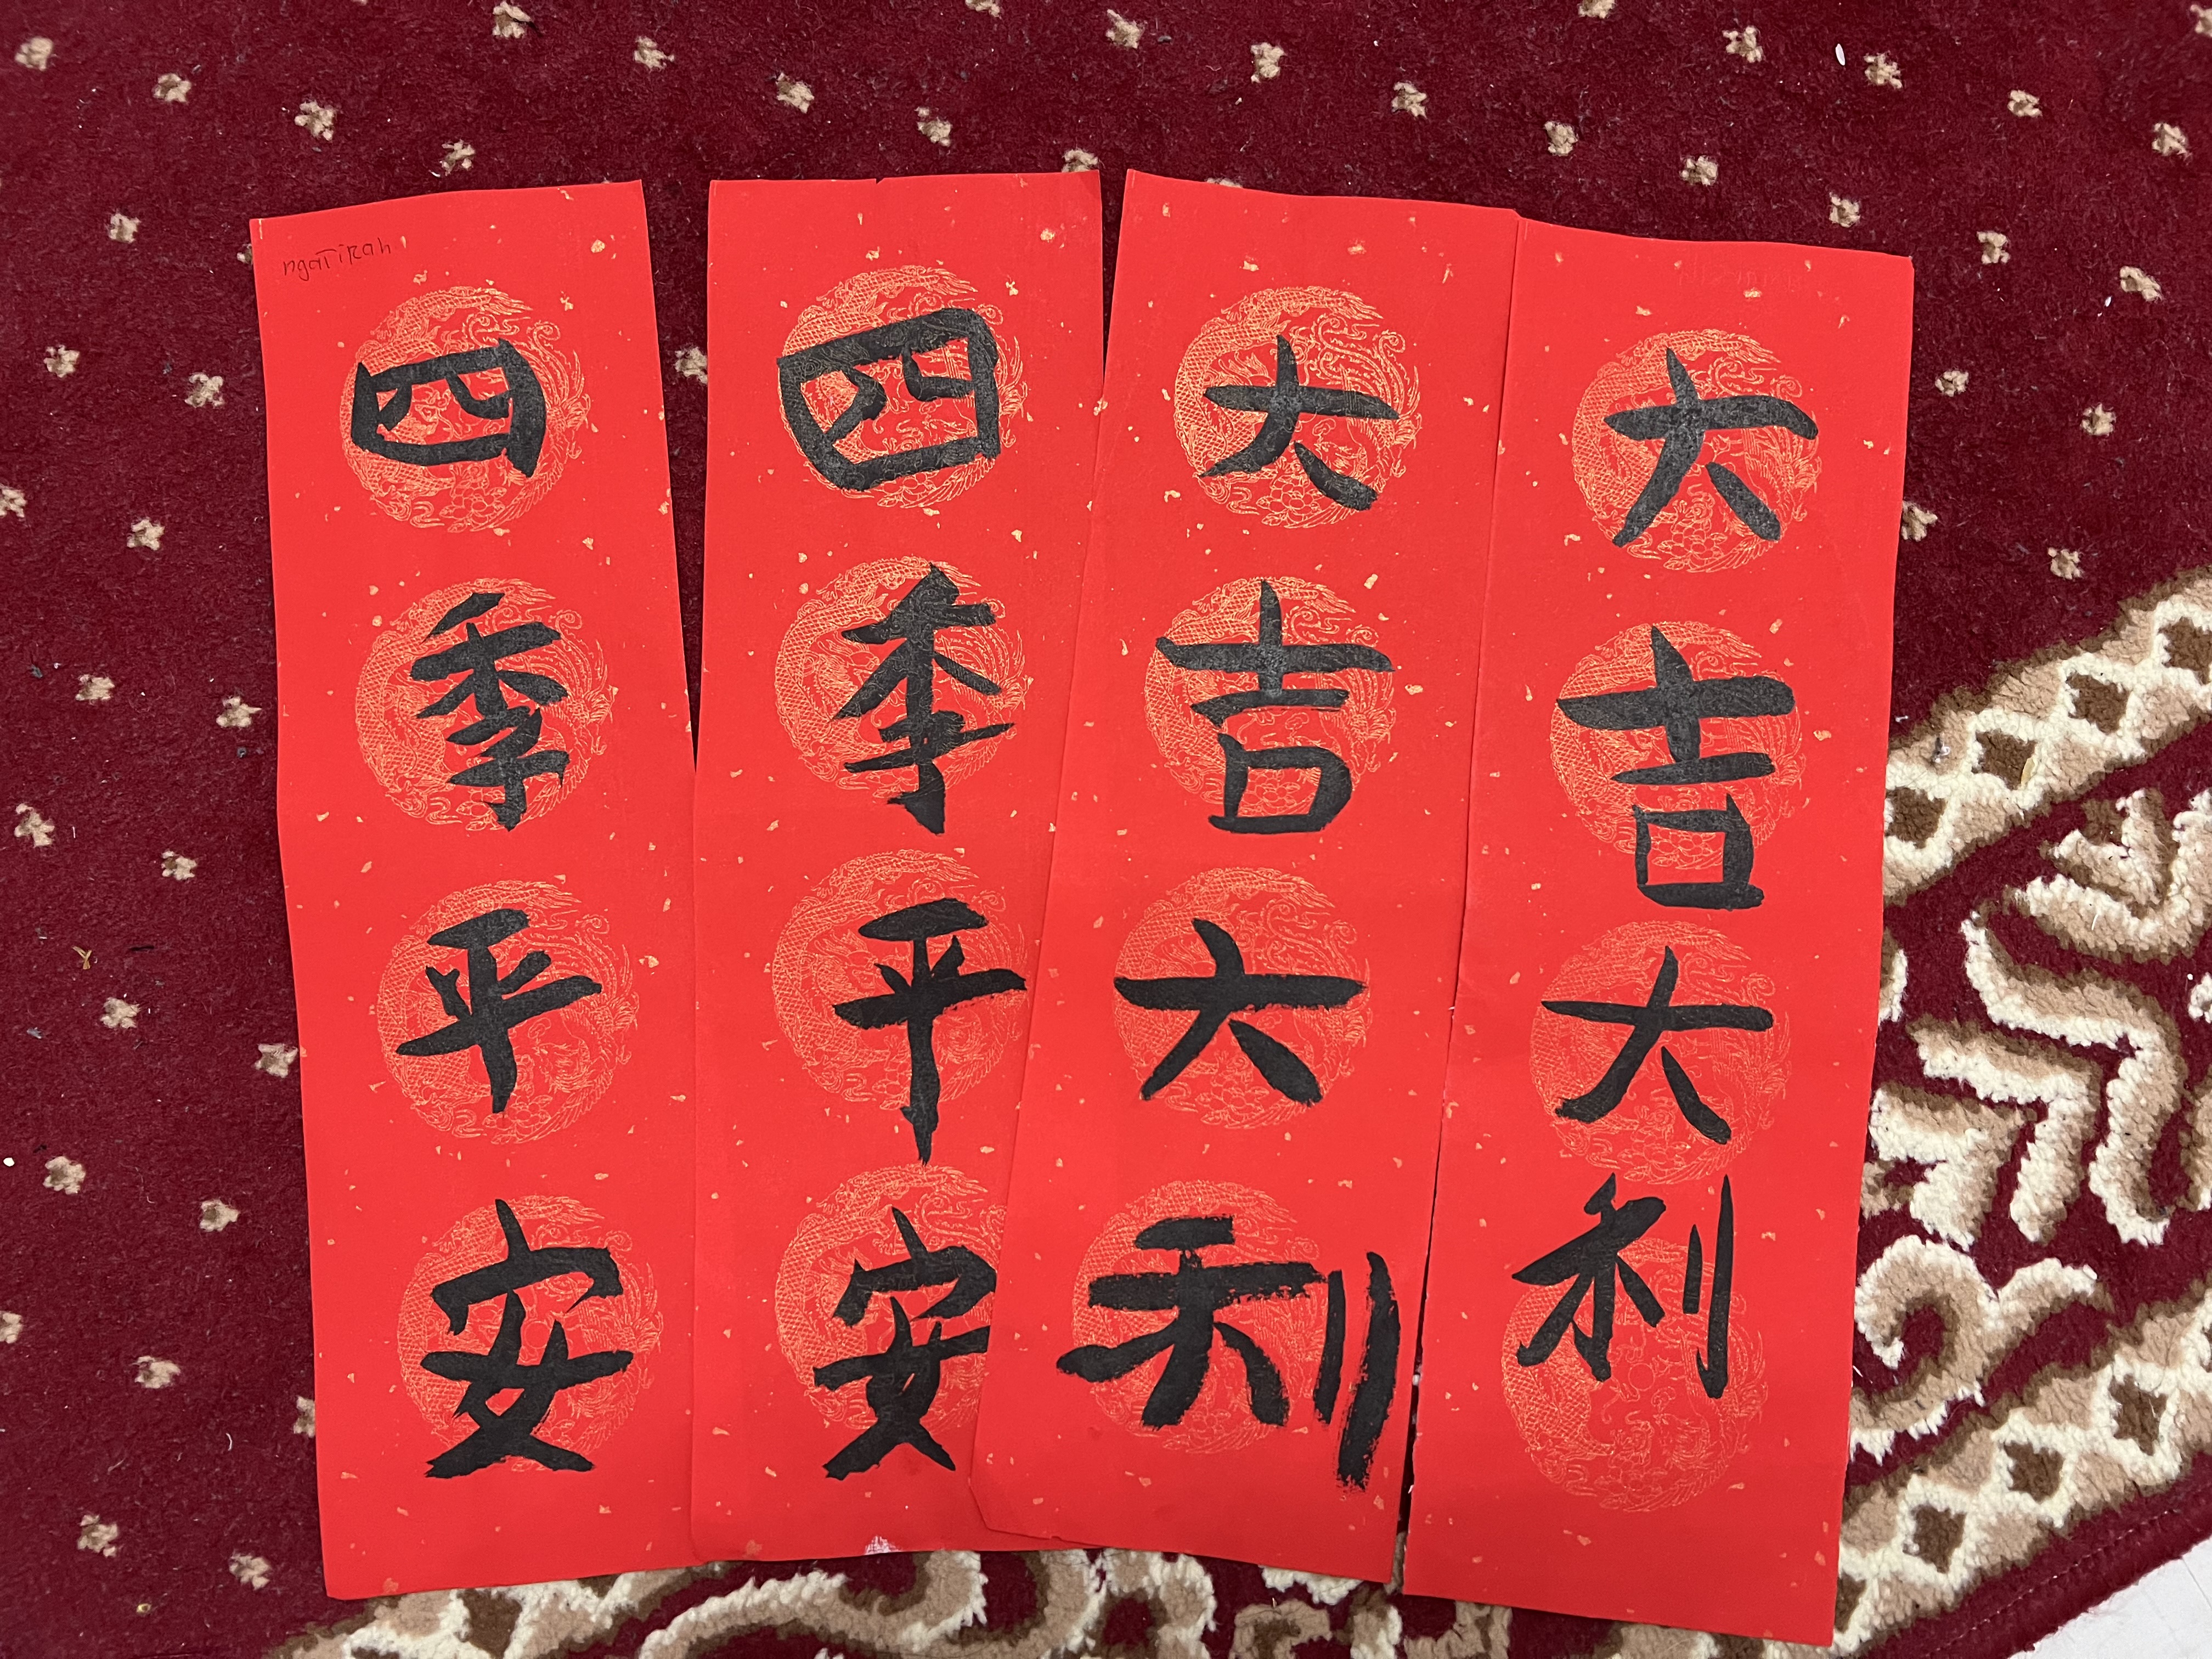 ngatirah
四季平安
四季平安
大吉大利
大吉大利